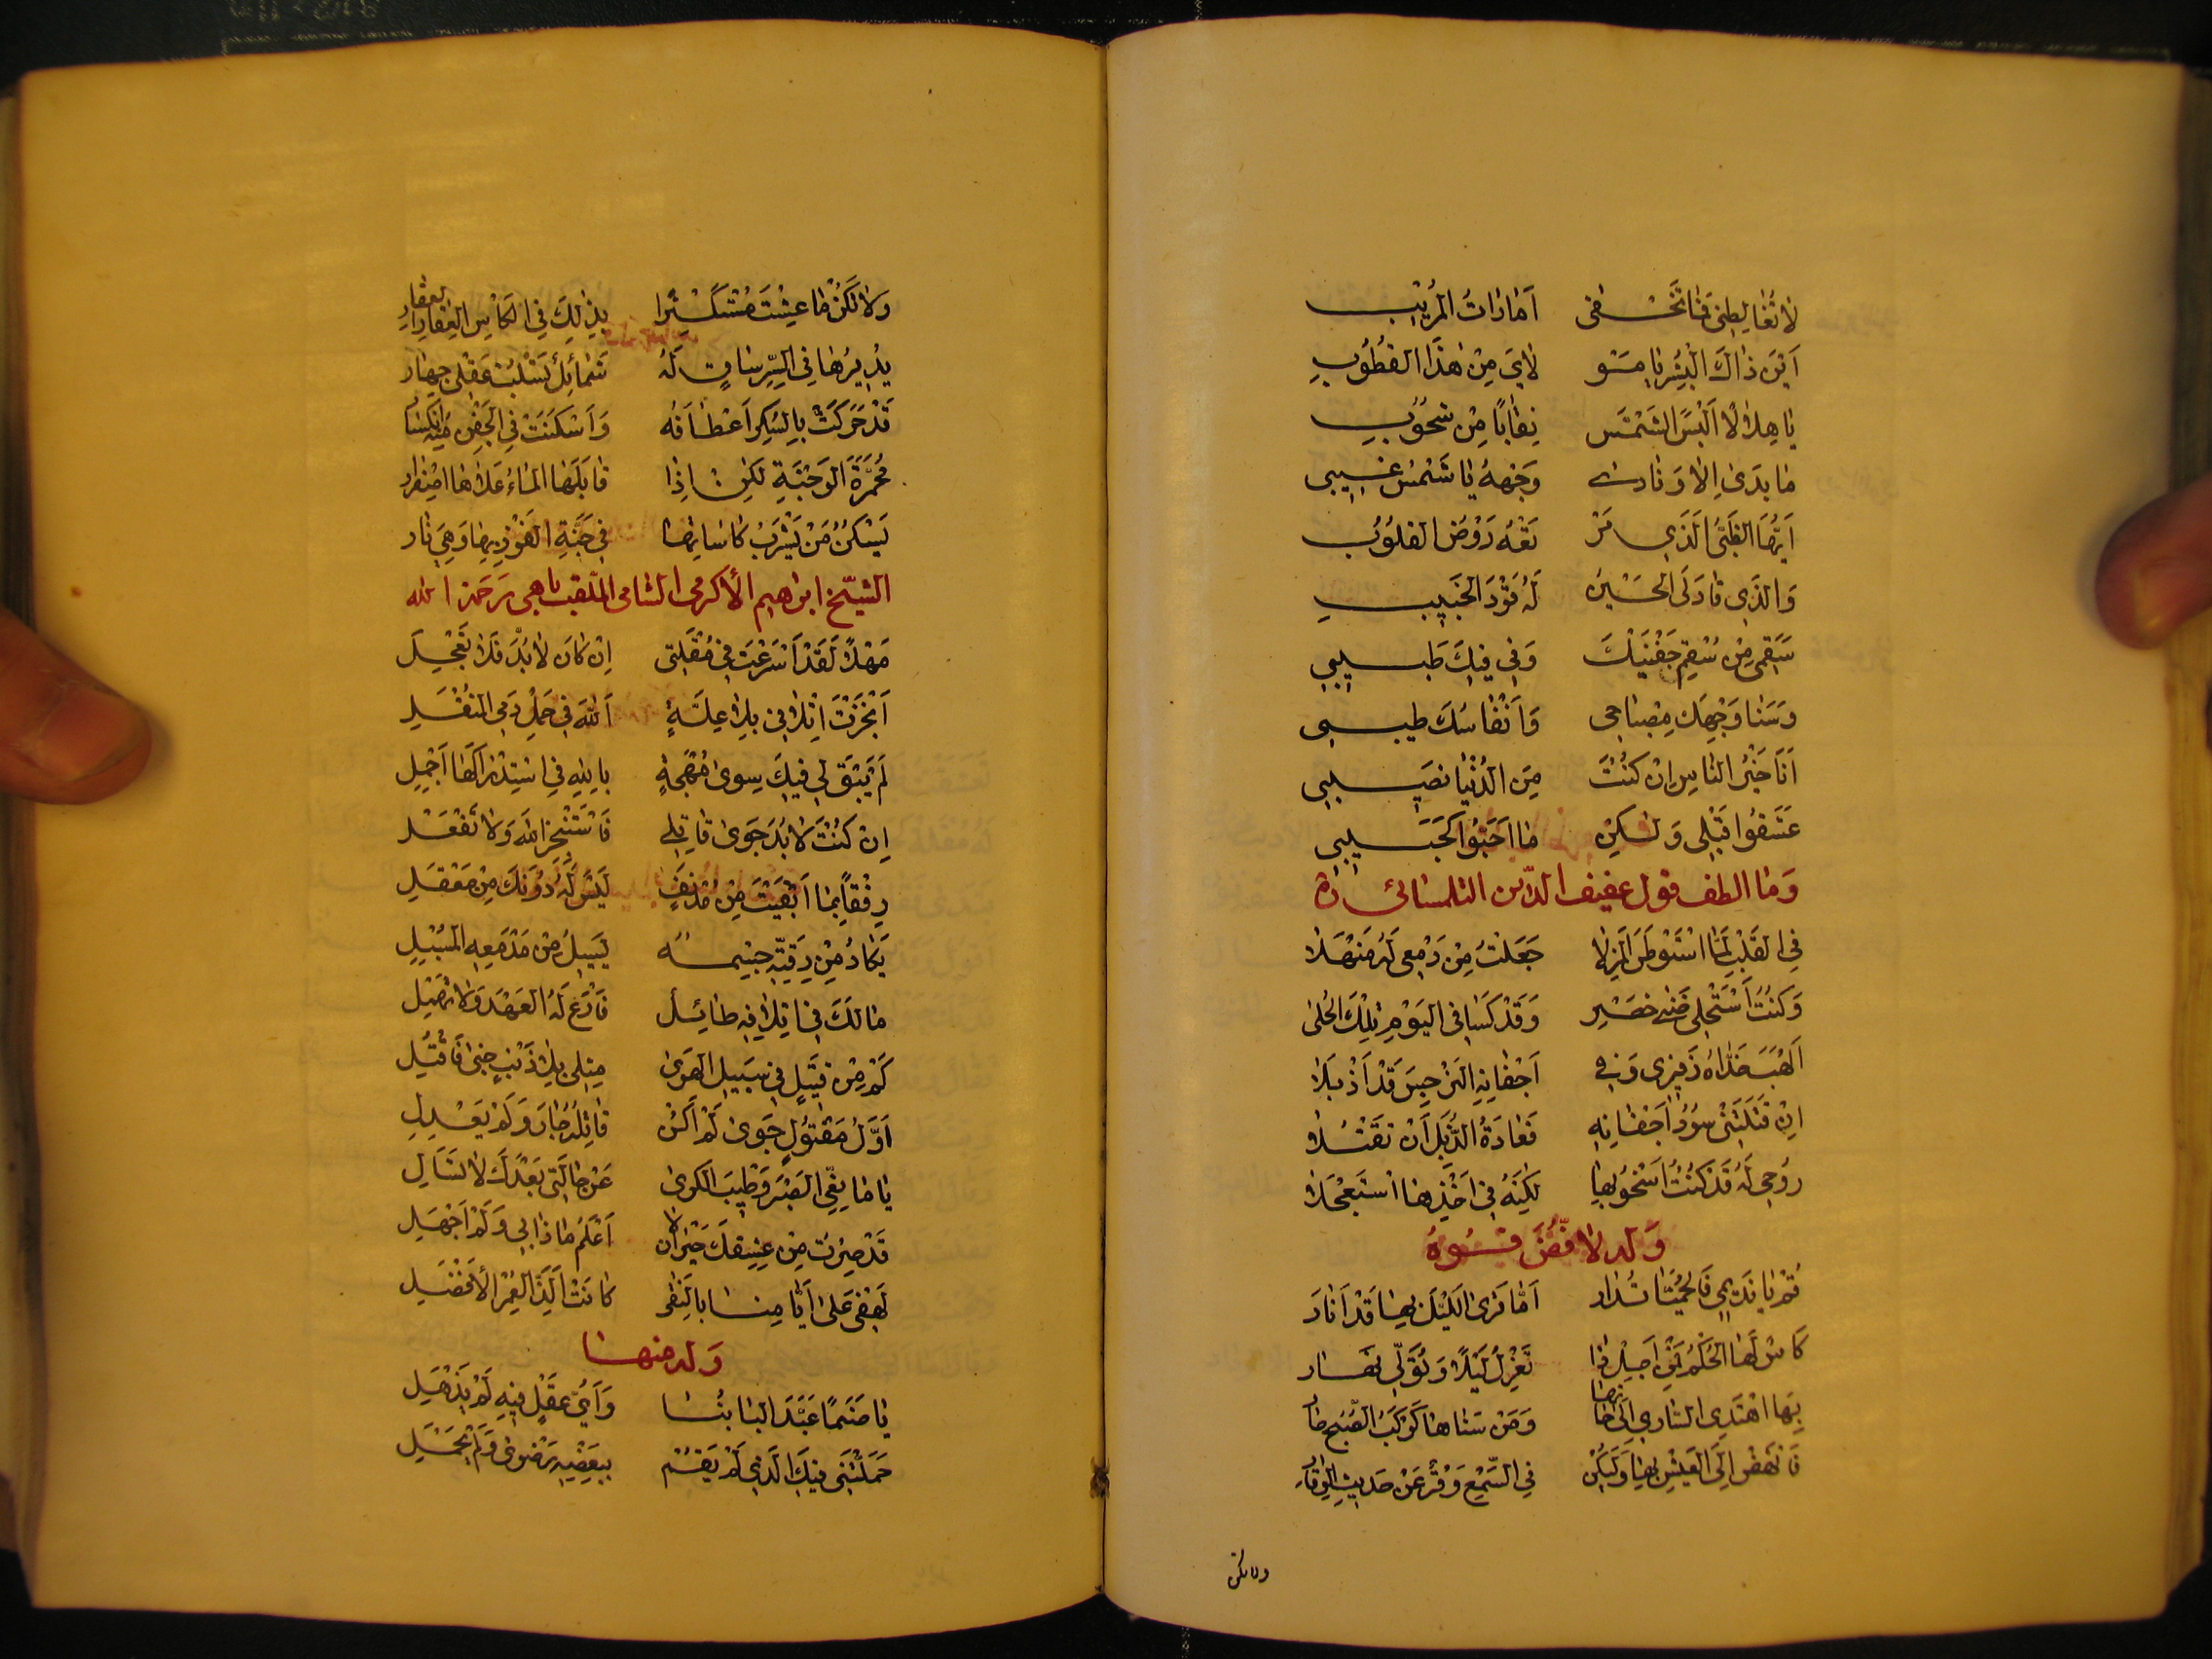 لا تُغالِطني فما تَخفى اَمَاراتُ المُريبِ
اَيْنَ ذاكَ الْبِشْرُ يا مَوْ لايَ مِنْ هٰذَا القُطُوبِ
يا هِلالًا اَلْبَسَ الشَمْسَ نِقَابًا مِنْ شُحُوبِ
ما بَدىٰ اِلا وَنادىٰ وَجْههُ يا شَمْسُ غيبي
اَيُّهَا الظَبْيُ الَّذي تَرْ تَعُه رَوْضَ القلُوبِ
وَالَّذي قادَني الحَسَنُ لَهُ قَوْدَ الجَنيبِ
سَقَمي مِنْ سُقمِ جَفْنَيْكَ وَفي فيكَ طَبيبي
وَسَنا وَجْهِكَ مِصْباحي وَاَنْفاسُكَ طيبي
اَنَا خَيْرُ النّاسِ اِنْ كُنْتَ مِنَ الدُّنْيا نَصيبي
عَشَقُوا قَبْلي وَلكِنْ ما اَحَبُّوا كَحَبيبي
وَمَا الطف قول عفيف الدّين التلمساني ره
فِي القَلْبِ لَمَّا اسْتَوْطَنَ المَنزِلا جَعَلْتُ مِنْ دَمْعي لَهُ مَنْهَلا
وَكُنْتُ اَسْتَحْلي ضَنىٰ خَصْرِهِ وَقَدْ كَسَاني اليَوْمَ تِلْكَ الحُلىٰ
اَلْهَبَ خَدّاهُ زَفيري وَفي اَجْفانِهِ النَرْجِسَ قَدْ اَذْبَلا
اِنْ قَتَلَتْني سُودُ اَجْفانِه فَعادَةُ الذُّبَلِ اَنْ تَقْتُلا
رُوحي لَهُ قَدْ كُنْتُ اَسْخُو بِها لكِنَّهُ في اَخْذِها اسْتَعْجَلا
وَله لا فُضَّ فُوهُ
قُمْ يا نَديمي فَالحُمَيّا تُدار اَمَا تَرىٰ اللَيْلَ بِها قَدْ اَنارَ
كَاسٌ لَها الحُكْمُ فَمِنْ اَجلِ ذا تَعْزِلُ لَيْلًا وَتُوَلّي نَهار
بِهَا اهْتَدى السّاري اِلىٰ حانها وَمَنْ سَناها كَوْكَبُ الصُّبْحِ حار
فَانْهَضْ اِلَى العَيْشِ بِها وَلْيَكُنْ فِي السَّمْعِ وَقْرٌ عَنْ حَديثِ الوَقار
ولا تكن
وَلا تَكُنْ ما عِشْتَ مُسْتَكْثِرا بِذلِكَ فِي الكَاسِ العِقارَ العقار
يُديرُها فِي السِّرِّ ساقٍ لَهُ شَمائِلُ تَسْلُبُ عَقْلي جِهار
قَدْ حَرَّكَتْ بِالسُكرِ اَعْطَافَه وَاَسْكَنَتْ فِي الجَفْنِ مِنْهُ انْكِسَار
مُحْمَرَّةُ الوَجْنَةِ لكِن اِذا قابَلَهَا المَاءُ عَلاهَا اصْفِرار
يَسْكُنُ مَنْ يَشْرَبُ كاسَاتِها في جَنَّةِ الفَوْزِ بِها وَهِيَ نار
الشيّخ ابراهيم الاكرمي الشامي الملّقب باهي رحمه الله
مَهْلًا لَقَدْ اَسْرَعْتَ في مَقْتَلي اِنْ كانَ لا بُدَّ فَلا تَعْجَلِ
اَنْجَزْتَ اِتْلافي بِلا عِلَّةٍ اَللّهَ في حَمْلِ دَمي المُثْقَلِ
لَمْ يَبْقَ لي فيكَ سِوىٰ مُهْجَةٍ بِاللّهِ في اسْتِدْراكِهَا اَجْمِلِ
اِنْ كُنْتَ لا بُدَّ جَوىٰ قاتِلي فَاسْتَخِرِ اللّهَ وَلا تَفْعَلِ
رِفْقًا بِما اَبْقَيْتَ مِنْ مُدْنَفٍ لَيْسَ لَهُ دُونَكَ مِنْ مَعْقِلِ
يَكادُ مِنْ رِقَّةِ جِسْمِه يَسيلُ مِنْ مَدْمَعِهِ المُسْبَلِ
مالَكَ في اِتْلافِهِ طائِلٌ فَارْعَ لَهُ العَهْدَ وَلا تُهْمِلِ
كَمْ مِنْ قَتيلٍ في سَبيلِ الهَوىٰ مِثْلي بِلا ذَنْبٍ جَنىٰ فَاقْتُلِ
اَوَّلُ مَقْتُولِ جَوىٰ لَمْ اَكُنْ قاتِلُهُ جارَ وَلَمْ يَعْدِلِ
يا مانِعِي الصَبْرَ وَطِيبَ الكَرىٰ عَنْ حالَتي بَعْدَكَ لا تَسْاَلِ
قَدْ صِرْتُ مِنْ عِشقِكَ حَيْرانَ لا اَعْلَمُ ماذا بي وَلَمْ اَجْهَلِ
لَهْفي عَلىٰ اَيّامِنا بِالنَقا كانَتْ اَلَذَّ العُمْرِ الاَفْضَلِ
وَله منها
يا صَنَمًا عَبَّدَ البابَنا وَاَيُّ عَقْلٍ فيهِ لَمْ يَذْهَلِ
حَمَلْتَني فيكَ الَّذي لَمْ يَقُمْ بِبَعْضِهِ رَضْوىٰ وَلَمْ يَحْمِلِ